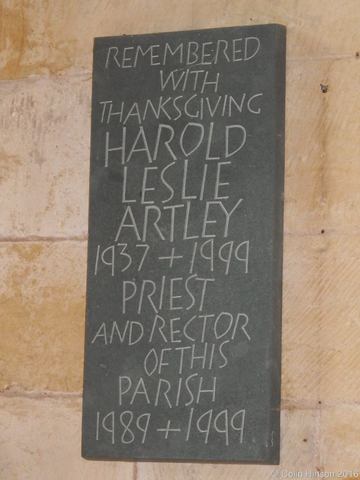 REMEMBERED
WITH
THANKSGIVING
HAROLD
LESLIE
ARTLEY
1937 + 1999
PRIEST
AND RECTOR
OF THIS
PARISH
1989 + 1999
© Colin Hinson 2016